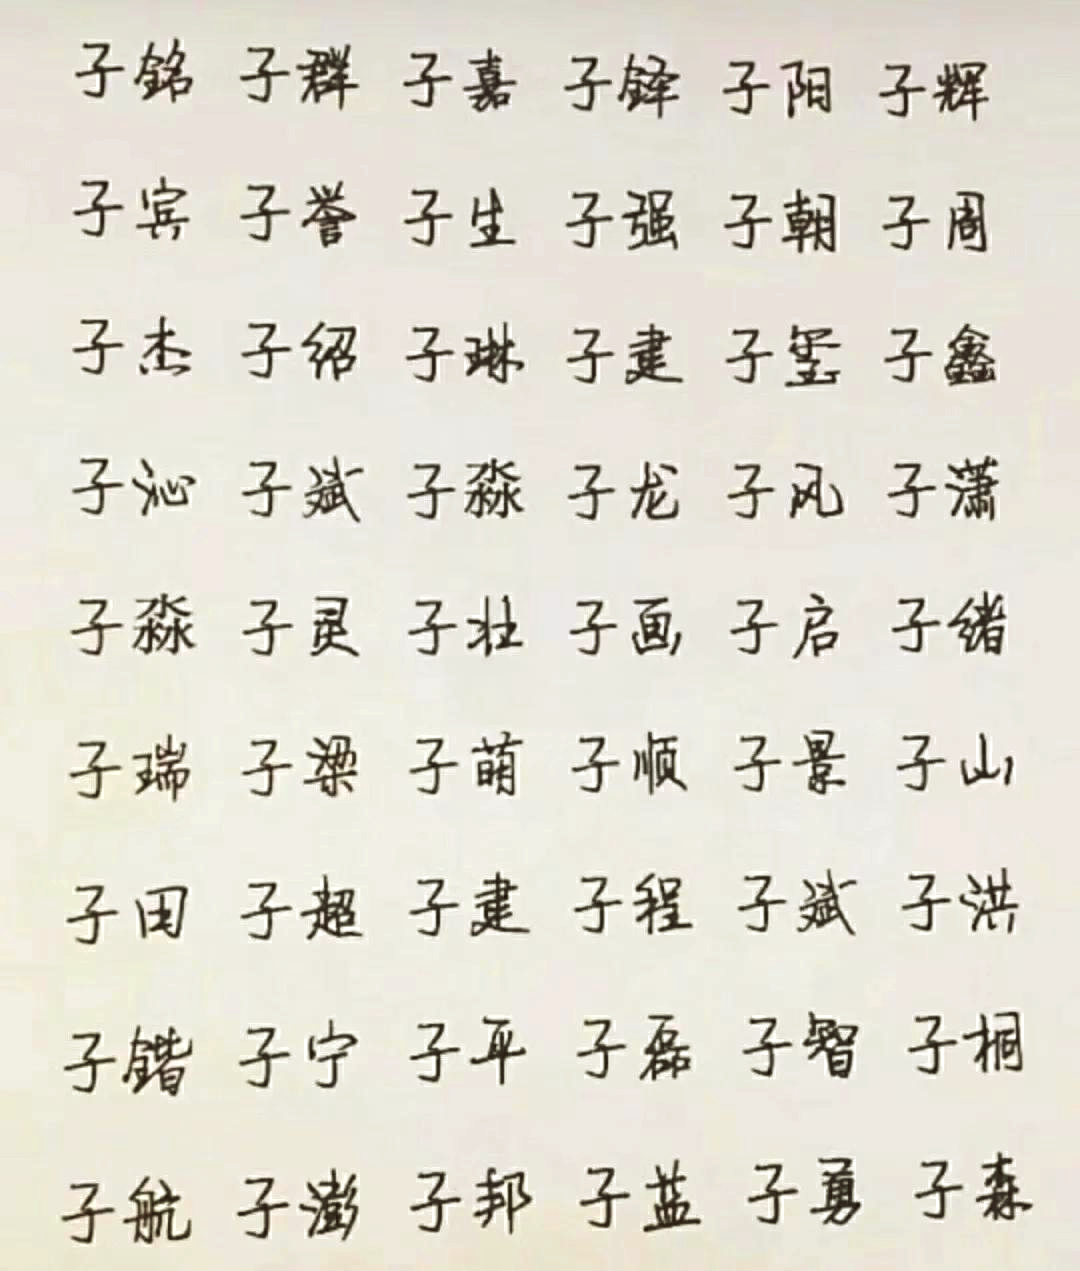 子铭 子群 子嘉 子锋 子阳 子辉
子宾 子誉 子生 子强 子朝 子周
子杰 子绍 子琳 子建 子玺 子鑫
子沁 子斌 子淼 子龙 子风 子潇
子淼 子灵 子壮 子画 子启 子绪
子瑞 子梁 子萌 子顺 子景 子山
子田 子超 子建 子程 子斌 子洪
子锴 子宁 子平 子磊 子智 子桐
子航 子澎 子邦 子蓝 子勇 子森